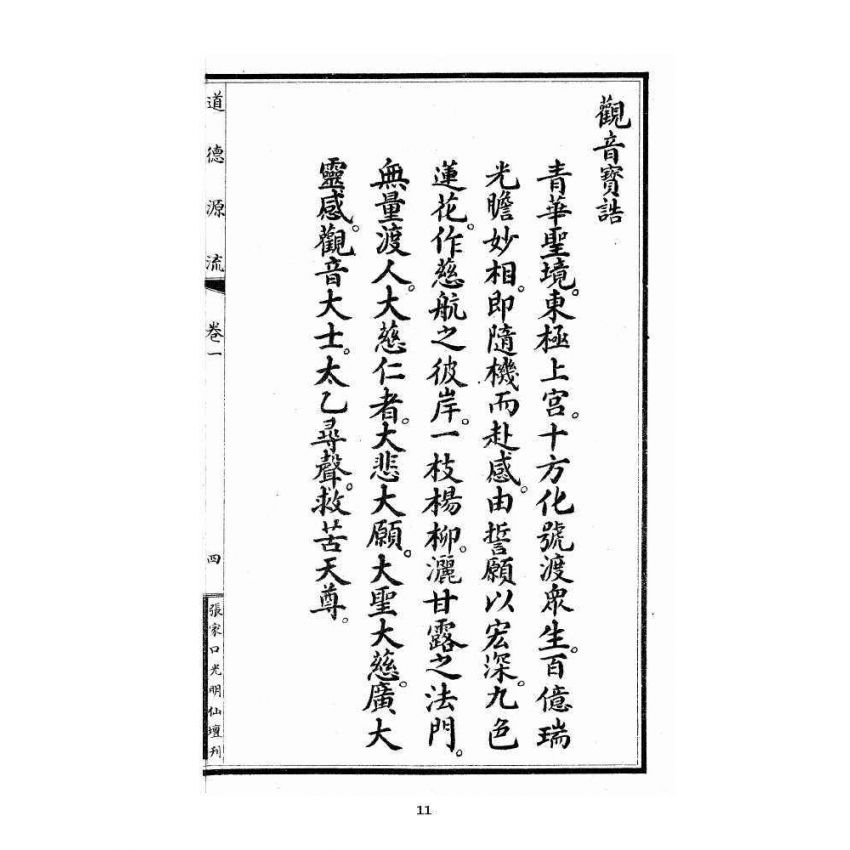 觀音寶誥
青華聖境。東極上宮。十方化號渡眾生。百億瑞
光瞻妙相。即隨機而赴感。由誓願以宏深。九色
蓮花。作慈航之彼岸。一枝楊柳。灑甘露之法門。
無量渡人。大慈仁者。大悲大願。大聖大慈。廣大
靈感。觀音大士。太乙尋聲。救苦天尊。
道德源流 卷一 四 張家口光明仙壇刊
11